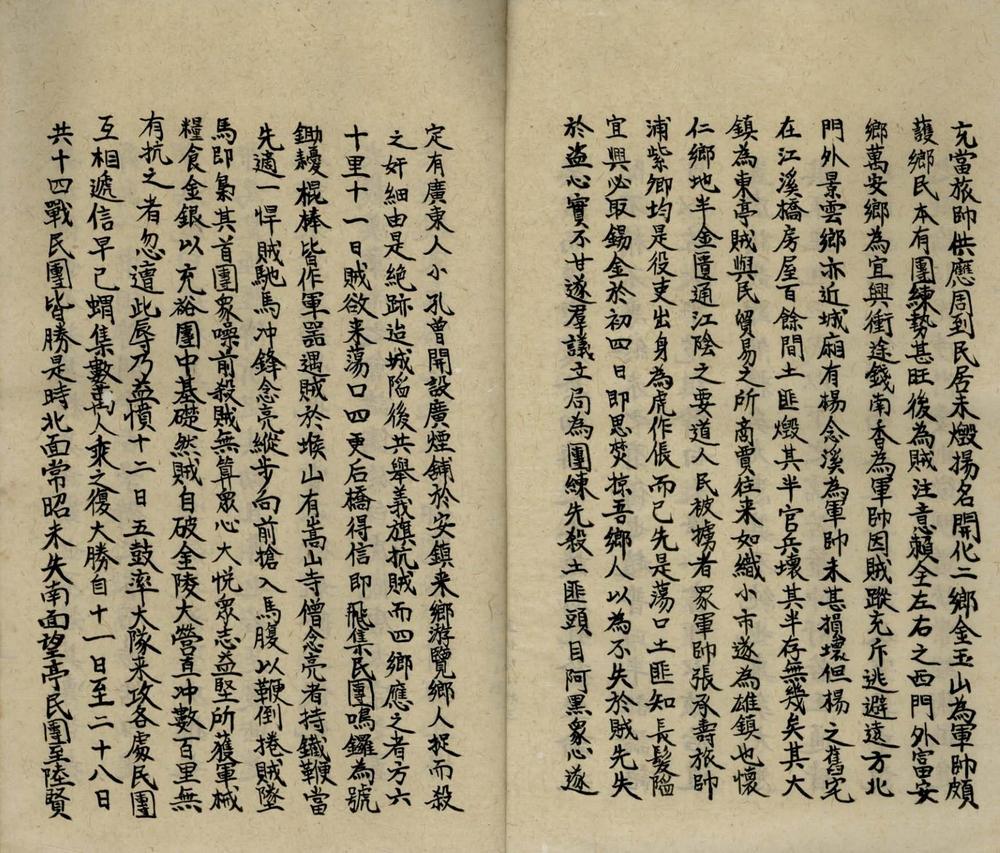 充當旅帥供應周到民居未燬揚名開化二鄉金玉山為軍帥頗
護鄉民本有團練勢甚旺後為賊注意賴全左右之西門外富安
鄉萬安鄉為宜興衝途錢南香為軍帥因賊蹤充斥逃避遠方北
門外景雲鄉亦近城廂有楊念溪為軍帥未甚損壞但楊之舊宅
在江溪橋房屋百餘間土匪燬其半官兵壞其半存無幾矣其大
鎮為東亭賊與民貿易之所商賈往来如織小市遂為雄鎮也懷
仁鄉地半金匱通江陰之要道人民被擄者眾軍帥張承壽旅帥
浦紫卿均是役吏出身為虎作倀而已先是蕩口土匪知長髮陷
宜興必取錫金於初四日即思焚掠吾鄉人以為不失於賊先失
於盜心實不甘遂羣議立局為團練先殺土匪頭目阿黑眾心遂
定有廣東人小孔曾開設廣煙舖於安鎮来鄉游覽鄉人捉而殺
之奸細由是絶跡迨城陷後共舉義旗抗賊而四鄉應之者方六
十里十一日賊欲来蕩口四更后橋得信即飛集民團鳴鑼為號
鋤耰棍棒皆作軍器遇賊於堠山有嵩山寺僧念亮者持鐵鞭當
先適一悍賊馳馬冲鋒念亮縱步向前搶入馬腹以鞭倒捲賊墜
馬即梟其首團眾噪前殺賊無算眾心大悅眾志益堅所獲軍械
糧食金銀以充裕團中基礎然賊自破金陵大營直冲數百里無
有抗之者忽遭此辱乃益憤十二日五鼓率大隊来攻各處民團
互相遞信早已蝟集數萬人乘之復大勝自十一日至二十八日
共十四戰民團皆勝是時北面常昭未失南面望亭民團至陸賢